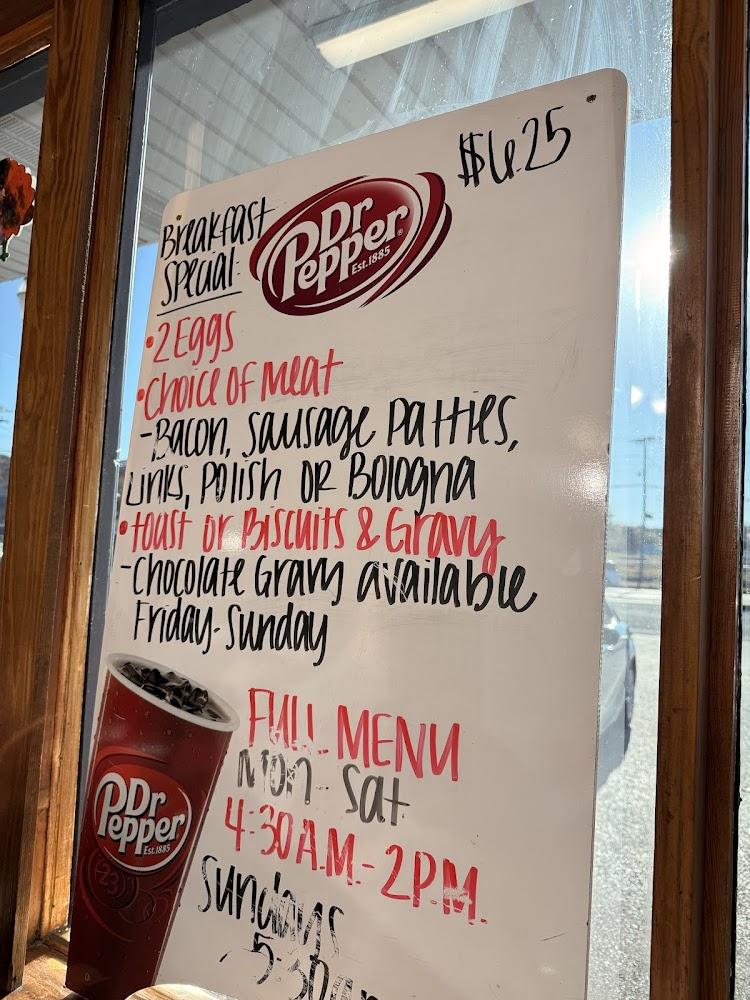 $6.25
Breakfast
Special:
Dr
Pepper®
Est.1885
•2 Eggs
•Choice of Meat
-Bacon, Sausage Patties,
Links, Polish or Bologna
•toast or Biscuits & Gravy
-Chocolate Gravy available
Friday-Sunday
FULL MENU
Mon-Sat
4:30A.M.-2P.M.
Sundays
5:30am
Dr
Pepper
Est.1885
23